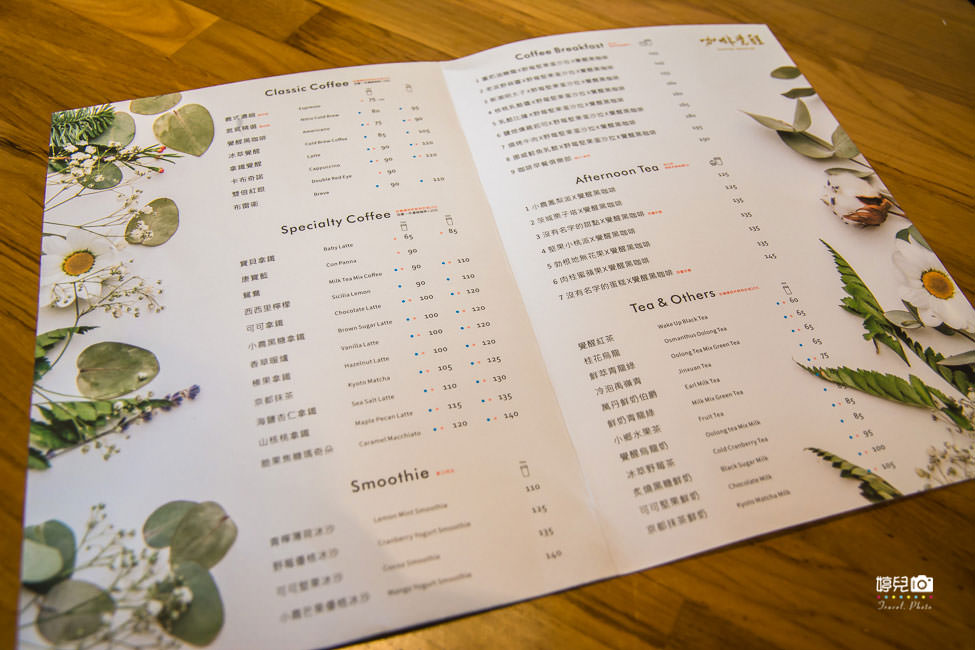 Classic Coffee
義式濃縮 Espresso 75
氮氣精選 Nitro Cold Brew 80 95
覺醒黑咖啡 Americano 75 90
冰萃覺醒 Cold Brew Coffee 85 105
拿鐵覺醒 Latte 90 120
卡布奇諾 Cappuccino 90 120
雙倍紅眼 Double Red Eye 90
布雷衛 Breve 90 110
Specialty Coffee
寶貝拿鐵 Baby Latte 65 85
康寶藍 Con Panna 90
鴛鴦 Milk Tea Mix Coffee 90 110
西西里檸檬 Sicilia Lemon 90 110
可可拿鐵 Chocolate Latte 100 120
小農黑糖拿鐵 Brown Sugar Latte 100 120
香草暖爐 Vanilla Latte 100 120
榛果拿鐵 Hazelnut Latte 100 120
京都抹茶 Kyoto Matcha 105 125
海鹽杏仁拿鐵 Sea Salt Latte 110 130
山核桃拿鐵 Maple Pecan Latte 115 135
脆果焦糖瑪奇朵 Caramel Macchiato 120 140
Smoothie
青檸薄荷冰沙 Lemon Mint Smoothie 110
野莓優格冰沙 Cranberry Yogurt Smoothie 125
可可堅果冰沙 Cocoa Smoothie 135
小農芒果優格冰沙 Mango Yogurt Smoothie 140
咖啡覺醒
Coffee Breakfast
9 咖啡早餐俱樂部
Afternoon Tea
1 小農鳳梨派X覺醒黑咖啡 125
2 茨威栗子塔X覺醒黑咖啡 125
3 沒有名字的甜點X覺醒黑咖啡 135
4 堅果小桃派X覺醒黑咖啡 135
5 勃根地無花果X覺醒黑咖啡 135
6 肉桂蜜蘋果X覺醒黑咖啡 135
7 沒有名字的蛋糕X覺醒黑咖啡 145
Tea & Others
覺醒紅茶 Wake Up Black Tea 60
桂花烏龍 Osmanthus Oolong Tea 65
鮮萃青龍綠 Oolong Tea Mix Green Tea 65
冷泡禹嶺青 Jinxuan Tea 65
萬丹鮮奶伯爵 Earl Milk Tea 75
鮮奶青龍綠 Milk Mix Green Tea
小鄉水果茶 Fruit Tea
覺醒烏龍奶 Oolong tea Mix Milk 85
冰萃野莓茶 Cold Cranberry Tea 85
炙燒黑糖鮮奶 Black Sugar Milk 95
可可堅果鮮奶 Chocolate Milk 100
京都抹茶鮮奶 Kyoto Matcha Milk 105
婷兒
Travel. Photo